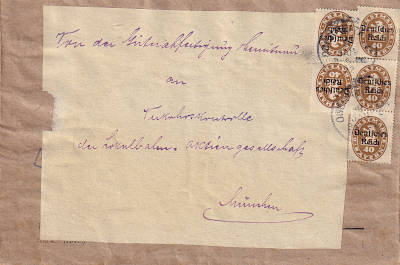 Von der Güterabfertigung
an
Verkehrskontrolle
der Lokalbahn-Aktiengesellschaft
München
Deutsches Reich
40
Deutsches Reich
40
Deutsches Reich
40
Deutsches Reich
Deutsches Reich